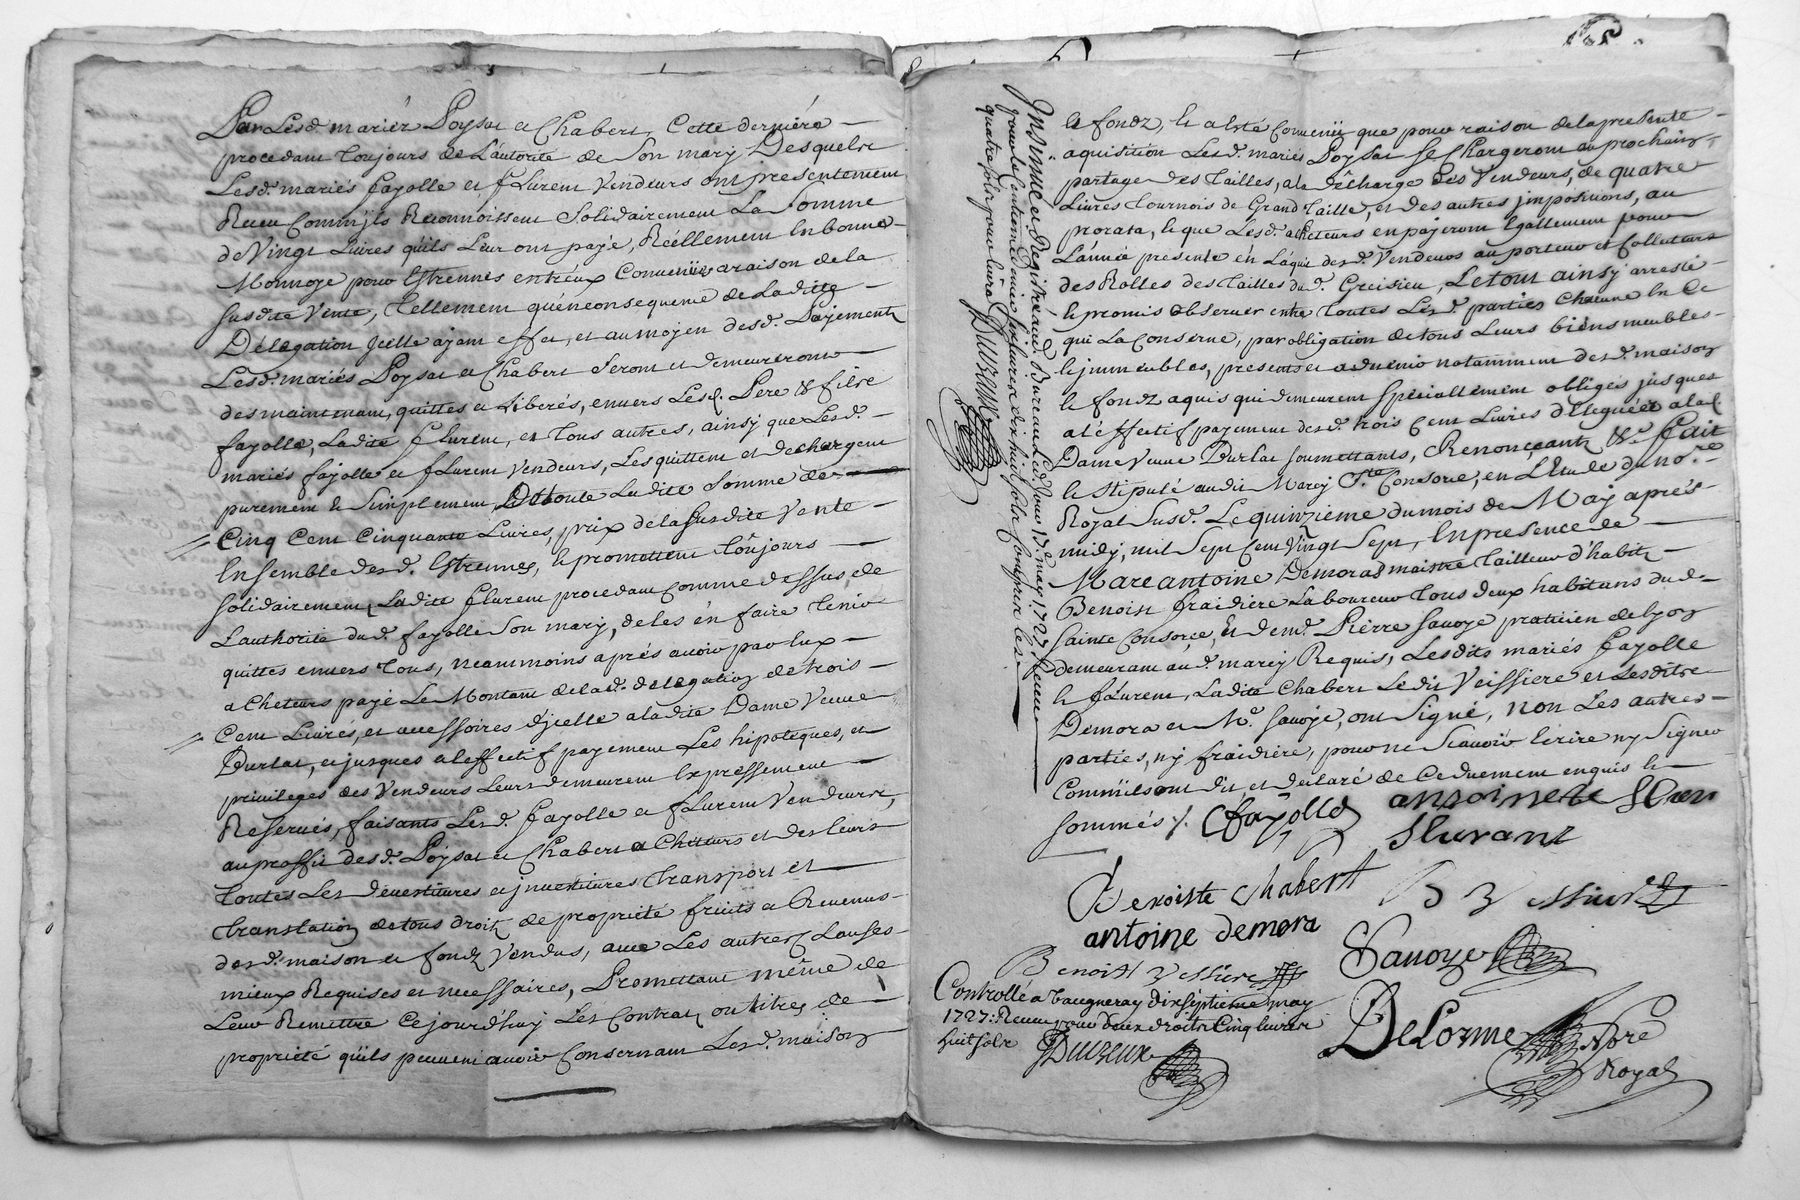 Par Lesd. mariéz Poysat et Chabert, Cette derniére
procedant toujours de L'autorite de Son mary Desquelz
Lesd. mariés fayolle et fLurent Vendeurs ont presentement
Receu Comm'jls Reconnoissent Solidairement La Somme
de Vingt Livres qu'ils Leur ont payé, Réellement En bonne
Monnoye pour Estrennes entréux Convenües araison de la
susdite Vente, Tellement quén consequence de Laditte
Délegation Jcelle ajant effet, et au moyen desd. Payements
Lesd. mariés Poysat et Chabert Seront et demeureront
des maintenant, quittes et Liberés, envers Lesd. Pere & filse
fayolle, Ladite fLurent, et Tous autres, ainsy que Lesd.
mariés fayolle et fLurent Vendeurs, Les quittent et dechargent
purement et Simplement De toute Ladite Somme de
Cinq Cent Cinquante Livres, prix de la susdite Vente
Ensemble desd. Estrennes, Et promettent Toûjours
solidairement Ladite fLurent procedant comme dessus, de
L'authorité dud. fayolle Son mary, de les én faire Tenir
quittes envers Tous, neammoins aprés avoir par Eux
acheteurs payé Le Montant de la d. delegation de trois
Cent Livres, et accessoires d'jcelle a la dite Dame Veuve
Durlat, et jusques a l'effectif payement Les hipoteques, et
privileges des Vendeurs Leurs demeurent Expressement
Reservés, faisants Lesd. fayolle et fLurent Vendeurs,
au proffit desd. Poysat et Chabert acheteurs et des leurs
Toutes Les devestitures et jnvestitures Transport et
Translation de tous droits de proprieté fruits et Revenus
desd. maison et fondz Vendus, avec Les autres Clauses
mieux Requises et necessaires, Promettant même de
Leur Remettre Cejourd'huy Les Contrats ou titres de
proprieté qüils peuvent avoir Consernant Lesd. maison
et fondz, Et a Esté Convenü que pour raison de la presente
aquisition Lesd. mariés Poysat se Chargeront au prochain
partage des Tailles, a la décharge des Vendeurs, de quatre
Livres Tournois de Grand Taille, et des autres jmpositions, au
prorata, Et que Lesd. acheteurs en payeront Egallement pour
L'année presente én L'aquit desd. Vendeurs au porteur et Collecteurs
des Rolles des Tailles dud. Greisieu, Le tout ainsy arresté
Et promis observer entre Toutes Lesd. parties Chacune En Ce
qui La Conserne, par obligation de tous Leurs biens meubles
Et jmmeubles, presents et advenir notamment desd. maison
Et fondz aquis qui demeurent Speciallement obligés jusques
a l'effectif payement desd. trois Cent Livres déleguées a lad.
Dame Veuve Durlat soumettants, Renonçeants &c fait
Et stipulé audit Marcy Ste Consorce, en L'Etude du nore
Royal Susd. Le quinziéme du mois de May aprés
midy, mil Sept Cent Vingt Sept, En presence de
Marc antoine Demoras maistre Tailleur d'habits
Benoist fraidiere Laboureur Tous deux habitans dud.
Sainte Consorce, Et de md. Pierre Savoye praticien de Lyon
demeurant aud. marcy Requis, Lesdits mariés fayolle
Et fLurent, Ladite Chabert Ledit Veissiere et Lesdits
Demora et Mr. Savoye, ont Signé, non Les autres
parties, ny fraidiere, pour ne Scavoir Ecrire ny Signer
Comm'ils ont dit, et declaré de Ce duement enquis Et
sommés /. Cfayolle antoinete fluran
flurant
Benoiste chabert
antoine demora
Benoist Vessiere
Savoye
Controllé a Vaugneray dix septieme may
1727. Receu pour deux droits Cinq livres
huit sols
Duvieux
DeLorme Nore
Royal
Insinué et Registré aud. Bureau Led. Jour 17e may 1727 Receu
quatre sols pour Livre Duvieux